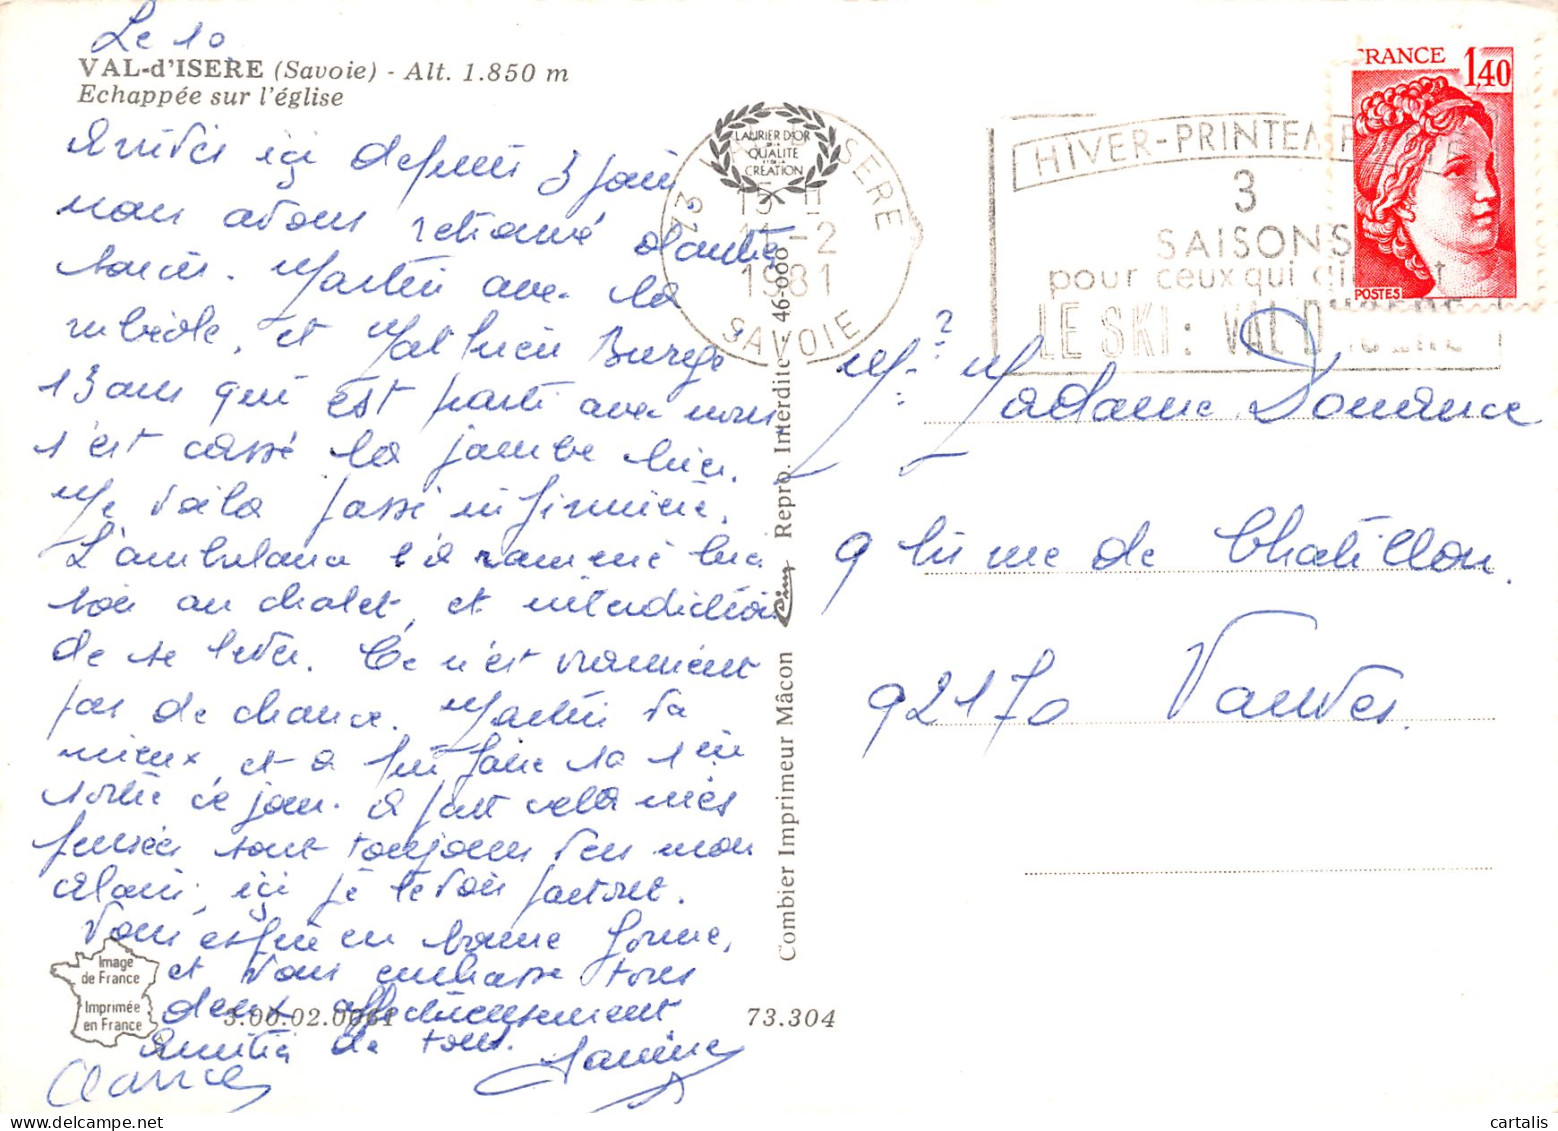 Le 10
VAL-d'ISERE (Savoie) - Alt. 1.850 m
Echappée sur l'église
Arrivés ici depuis 3 jours
nous avons retrouvé d'autres
soucis. Martin avec la
rubéole, et Mathieu
13 ans qui est parti avec nous
s'est cassé la jambe hier.
Me voilà passé infirmière.
L'ambulance l'a ramené hier
soir au chalet, et interdiction
de se lever. Ce n'est vraiment
pas de chance. Martin va
mieux, et a pu faire sa 1ère
sortie ce jour. A part cela mes
pensées sont toujours vers mon
Alain, ici je le vois partout.
Vous espère en bonne forme,
et vous embrasse tous
deux affectueusement
Amitiés de tous.
Image
de France
Imprimée
en France
3.00.02.0061
73.304
Combier Imprimeur Mâcon Cim Repro. Interdite 46-000
LAURIER D'OR
DE LA
QUALITÉ
CRÉATION
73 VAL D'ISERE
11-2
1981
SAVOIE
HIVER-PRINTEMPS
3
SAISONS
pour ceux qui aiment
LE SKI: VAL D'ISERE
FRANCE 1,40
POSTES
Mr. ? Madame
9 bis rue de Chatillon.
92170 Vanves.
cartalis